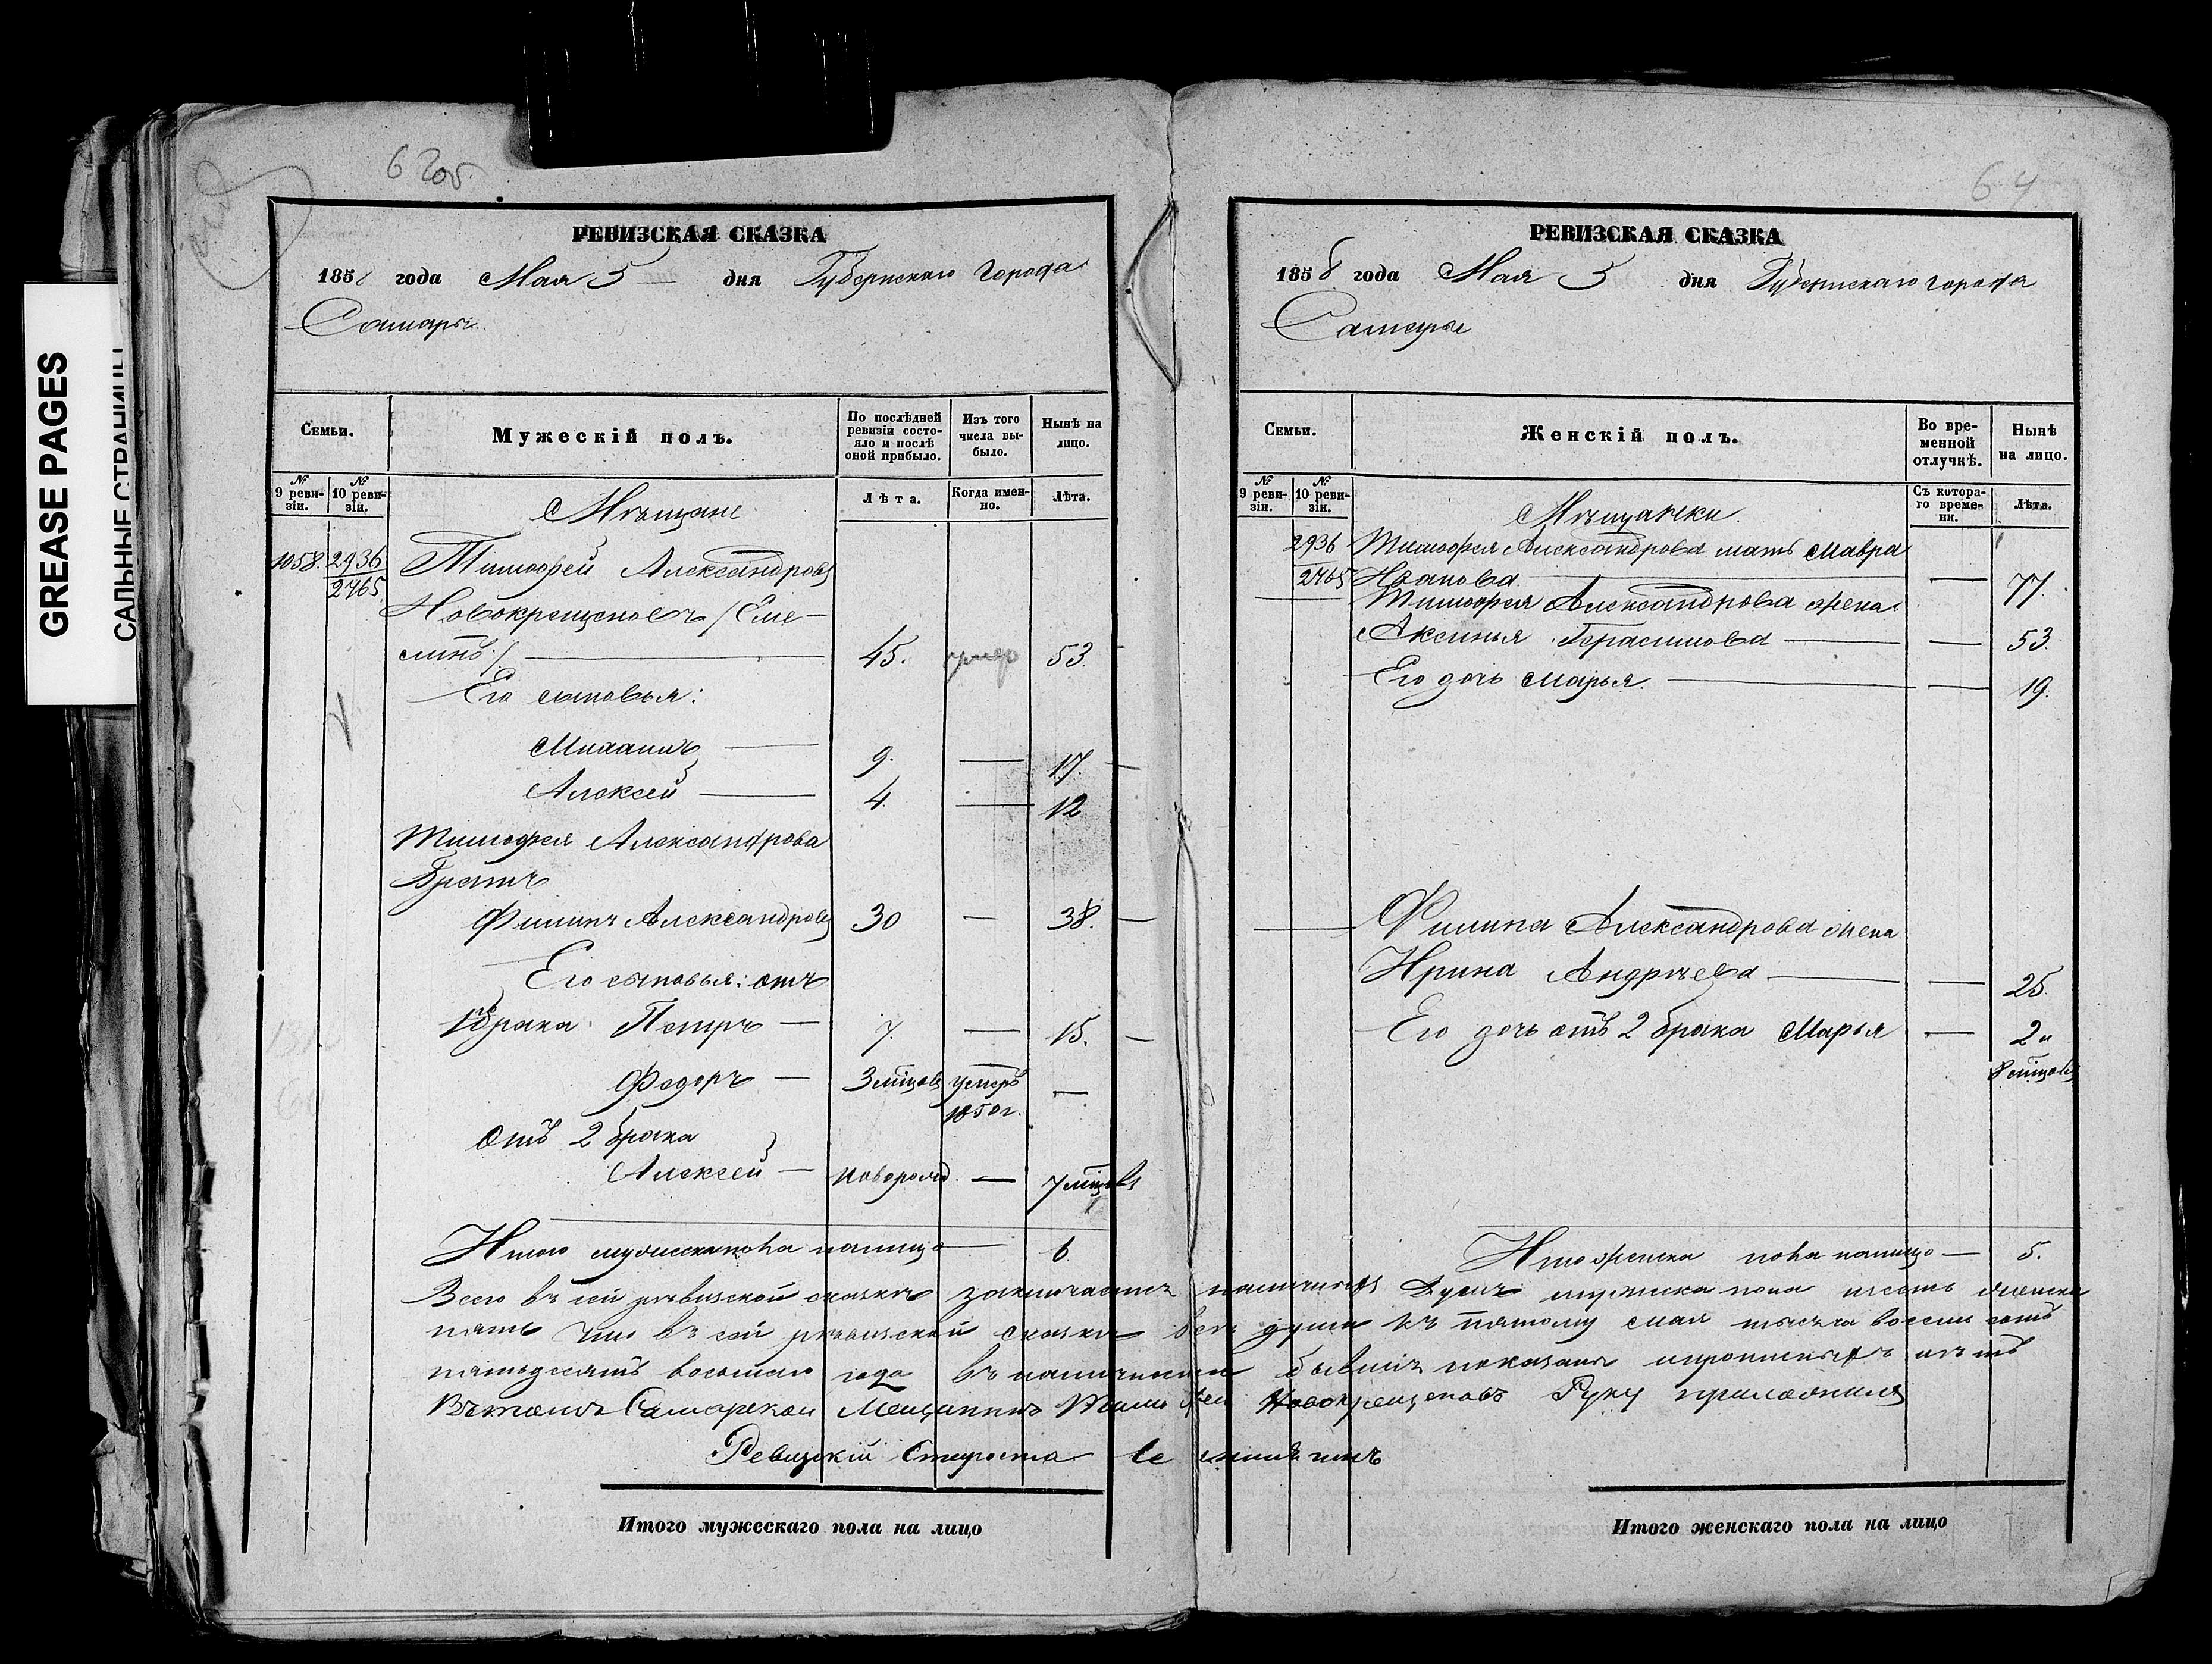 GREASE PAGES
САЛЬНЫЕ СТРАНИЦЫ
РЕВИЗСКАЯ СКАЗКА
185 года Мая 5 дня Губернскаго города
Самары
Семьи.
Мужескій полъ.
По послѣдней ревизіи состояло и послѣ оной прибыло.
Изъ того числа выбыло.
Нынѣ на лицо.
№ 9 ревизіи.
№ 10 ревизіи.
Лѣта.
Когда именно.
Лѣта.
Мѣщане
1058. 2936 Тимофей Александровъ
2765
Новокрещеновъ /Еме-
линъ/ 45. 53.
Его сыновья:
Михаилъ — 9. — 17.
Алексей — 4. — 12
Тимофея Александрова
Братъ
Филипъ Александровъ 30 — 38.
Его сыновья: отъ
1го брака Петръ — 7. — 15.
Федоръ — 3 мѣцовъ умеръ —
1850 г.
Отъ 2 брака
Алексей — новорожд. — 7 мѣцовъ
Итого мужеска пола налицо — 6
РЕВИЗСКАЯ СКАЗКА
1858 года Мая 5 дня Губернскаго города
Самары
Семьи.
Женскій полъ.
Во временной отлучкѣ.
Нынѣ на лицо.
№ 9 ревизіи.
№ 10 ревизіи.
Съ котораго времени.
Лѣта.
Мѣщанки
2936 Тимофея Александрова мать Мавра
2765 Иванова — — 77.
Тимофея Александрова жена
Аксинья Герасимова — — 53.
Его дочь Марья — — 19.
Филипа Александрова жена
Ирина Андрѣева — — 25.
Его дочь отъ 2 брака Марья — 2 и
8 мѣцовъ
Итого женска пола налицо — 5.
Всего въ сей ревизской сказкѣ заключается наличныхъ Душъ мужеска пола шесть женска
пять что въ сей ревизской сказки все души къ пятому мая тысяча восемь сотъ
пятьдесятъ восьмаго года въ наличности бывшія показаны и пропискныхъ нѣтъ
Въ томъ Самарской Мещанинъ Тимофей Новокрещеновъ Руку приложилъ
Ревизкій Староста
Итого мужескаго пола на лицо
Итого женскаго пола на лицо